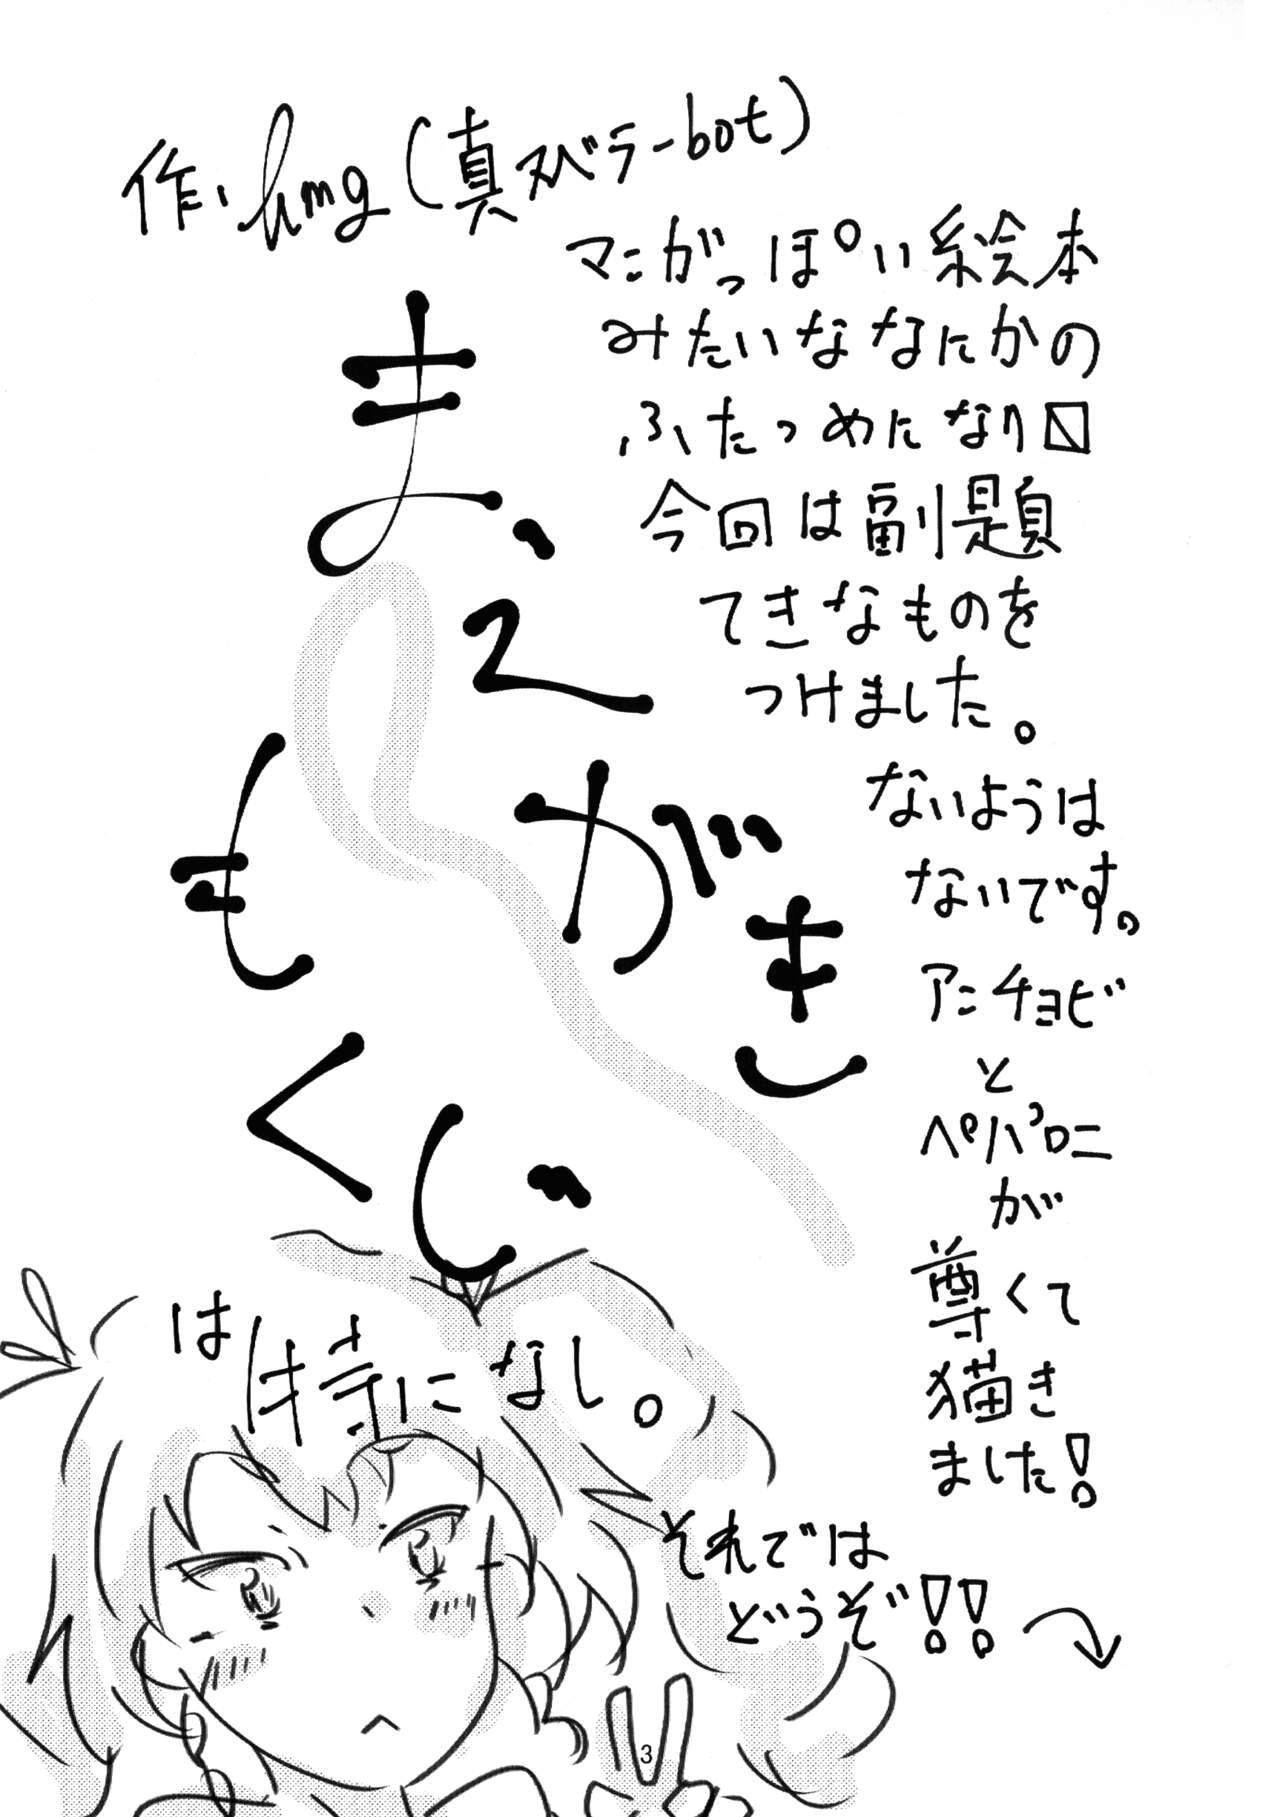 作、hmg(真スベラーbot)
ま、
え
がき
もくじ
は特になし。
マンがっぽい絵本
みたいななにかの
ふたつめになり〼
今回は副題
てきなものを
つけました。
ないようは
ないです。
アンチョビ
と
ペパロニ
が
尊くて
描き
ました!
それでは
どうぞ!!
3